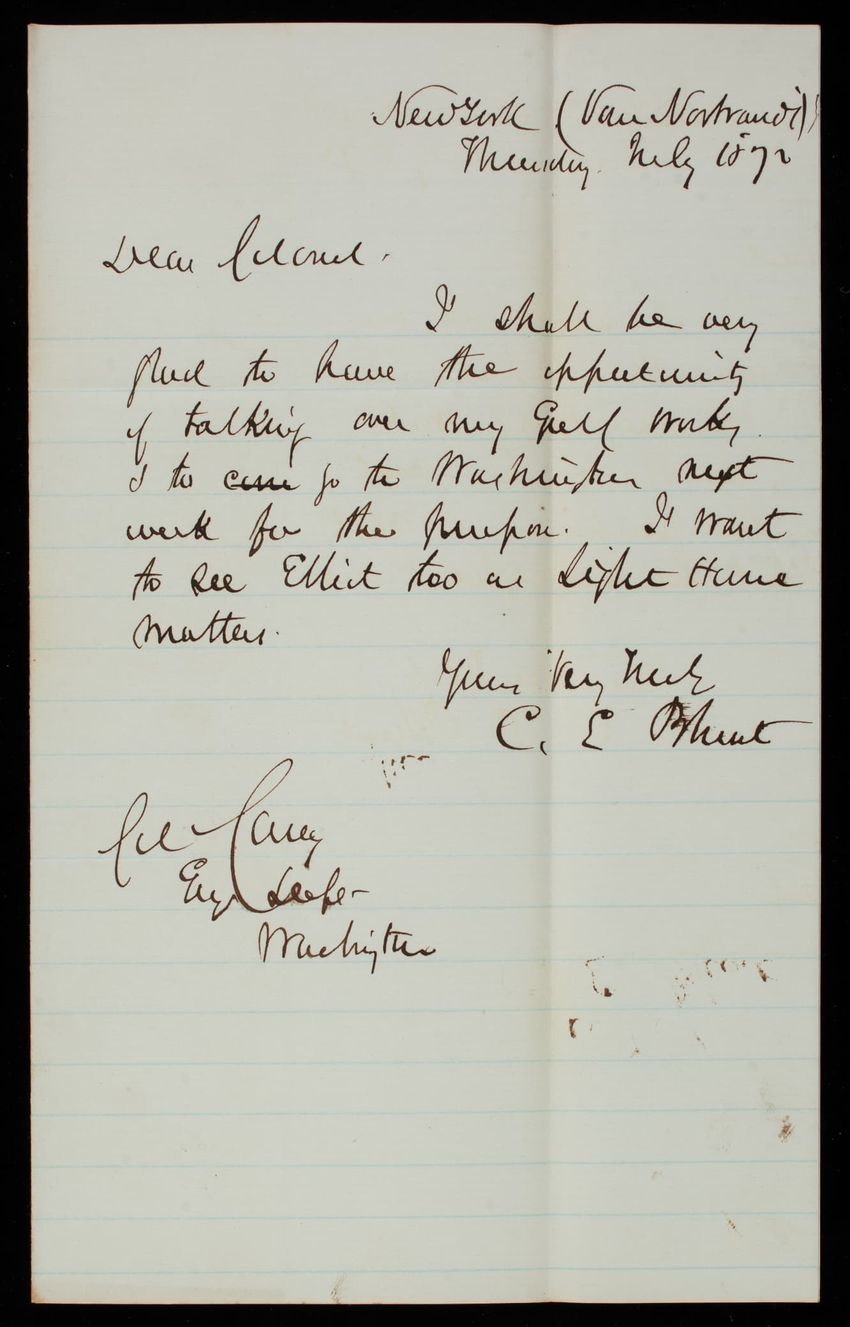 New York (Van Nostrand's)
Thursday. July 1872
Dear Colonel.
I shall be very
glad to have the opportunity
of talking over my Gulf works.
& to come go to Washington next
week for the purpose. I want
to see Elliot too on Light House
matters.
Yours Very Truly
C. E. Blunt
Col Casey
Engr Dept
Washington